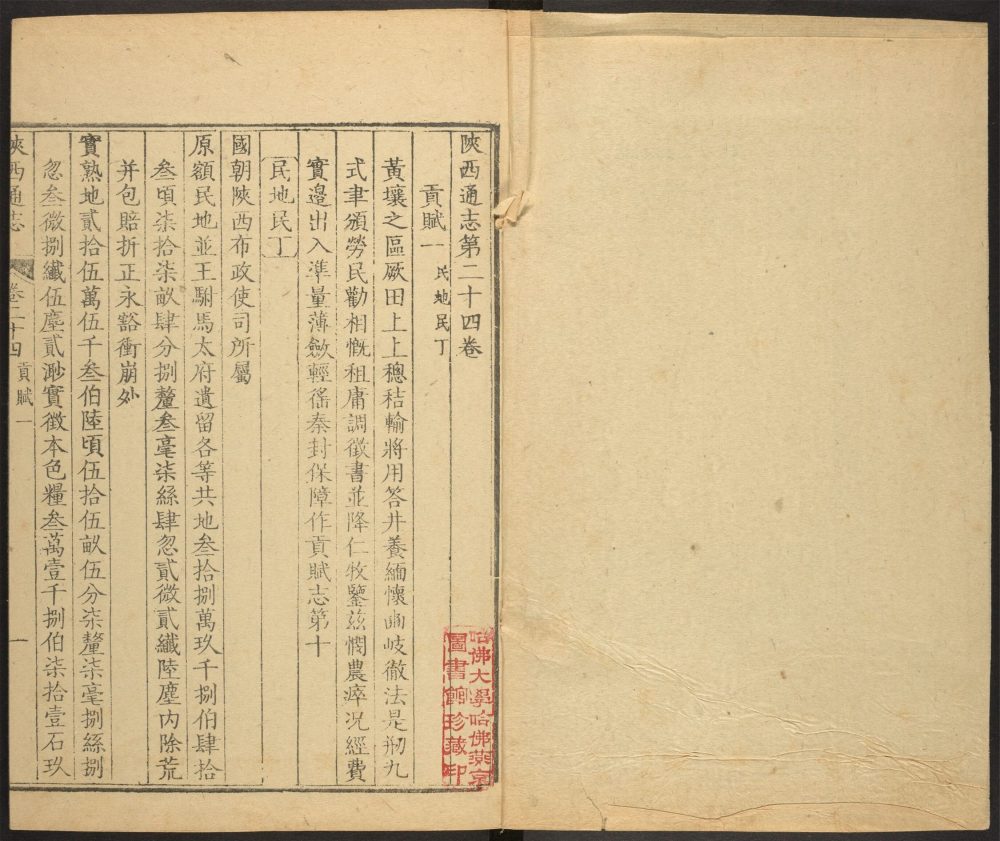 陝西通志第二十四卷
貢賦一 民地民丁
黃壤之區厥田上上緫秸輸將用答井養緬懷豳岐徹法是刱九
式聿頒勞民勸相慨租庸調徵書並降仁牧鑒玆憫農瘁況經費
實邉出入準量薄斂輕徭秦封保障作貢賦志第十
民地民丁
國朝陝西布政使司所屬
原額民地並王駙馬太府遺留各等共地叁拾捌萬玖千捌伯肆拾
叁頃柒拾柒畝肆分捌釐叁毫柒絲肆忽貳微貳纖陸塵內除荒
并包賠折正永豁衝崩外
實熟地貳拾伍萬伍千叁伯陸頃伍拾伍畝伍分柒釐柒毫捌絲捌
忽叁微捌纖伍塵貳渺實徵本色糧叁萬壹千捌伯柒拾壹石玖
陝西通志 卷二十四 貢賦一 一
哈佛大學哈佛燕京
圖書館珍藏印